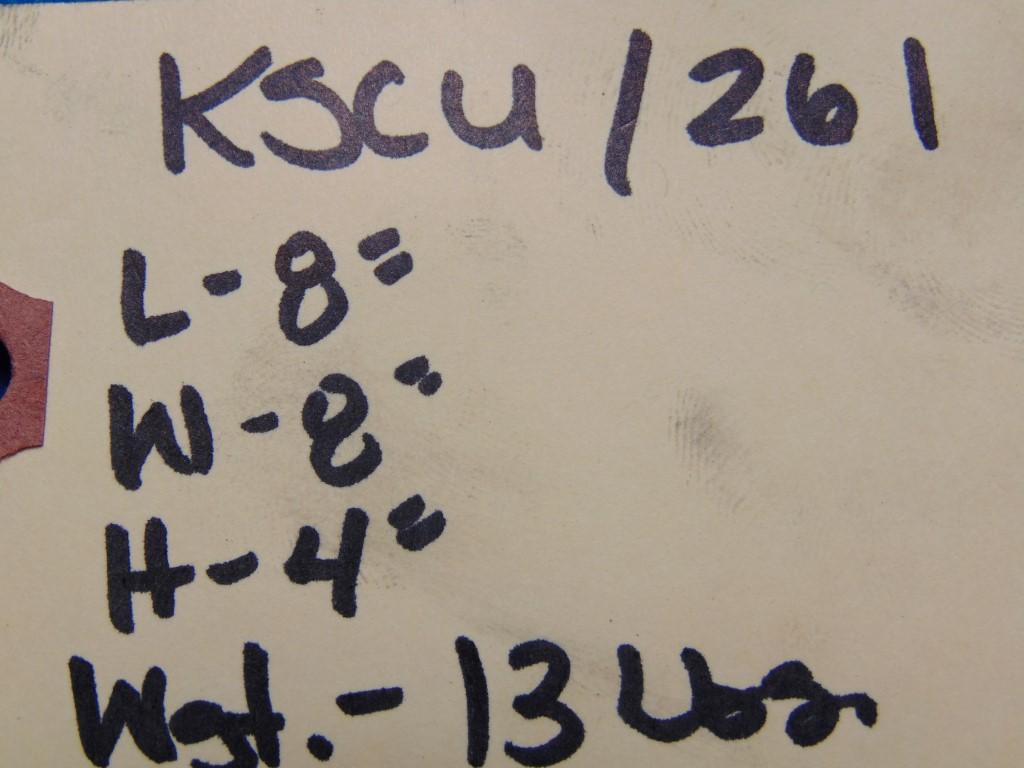 KSCU/261
L-8"
W-8"
H-4"
Wgt.-13 Lbs.